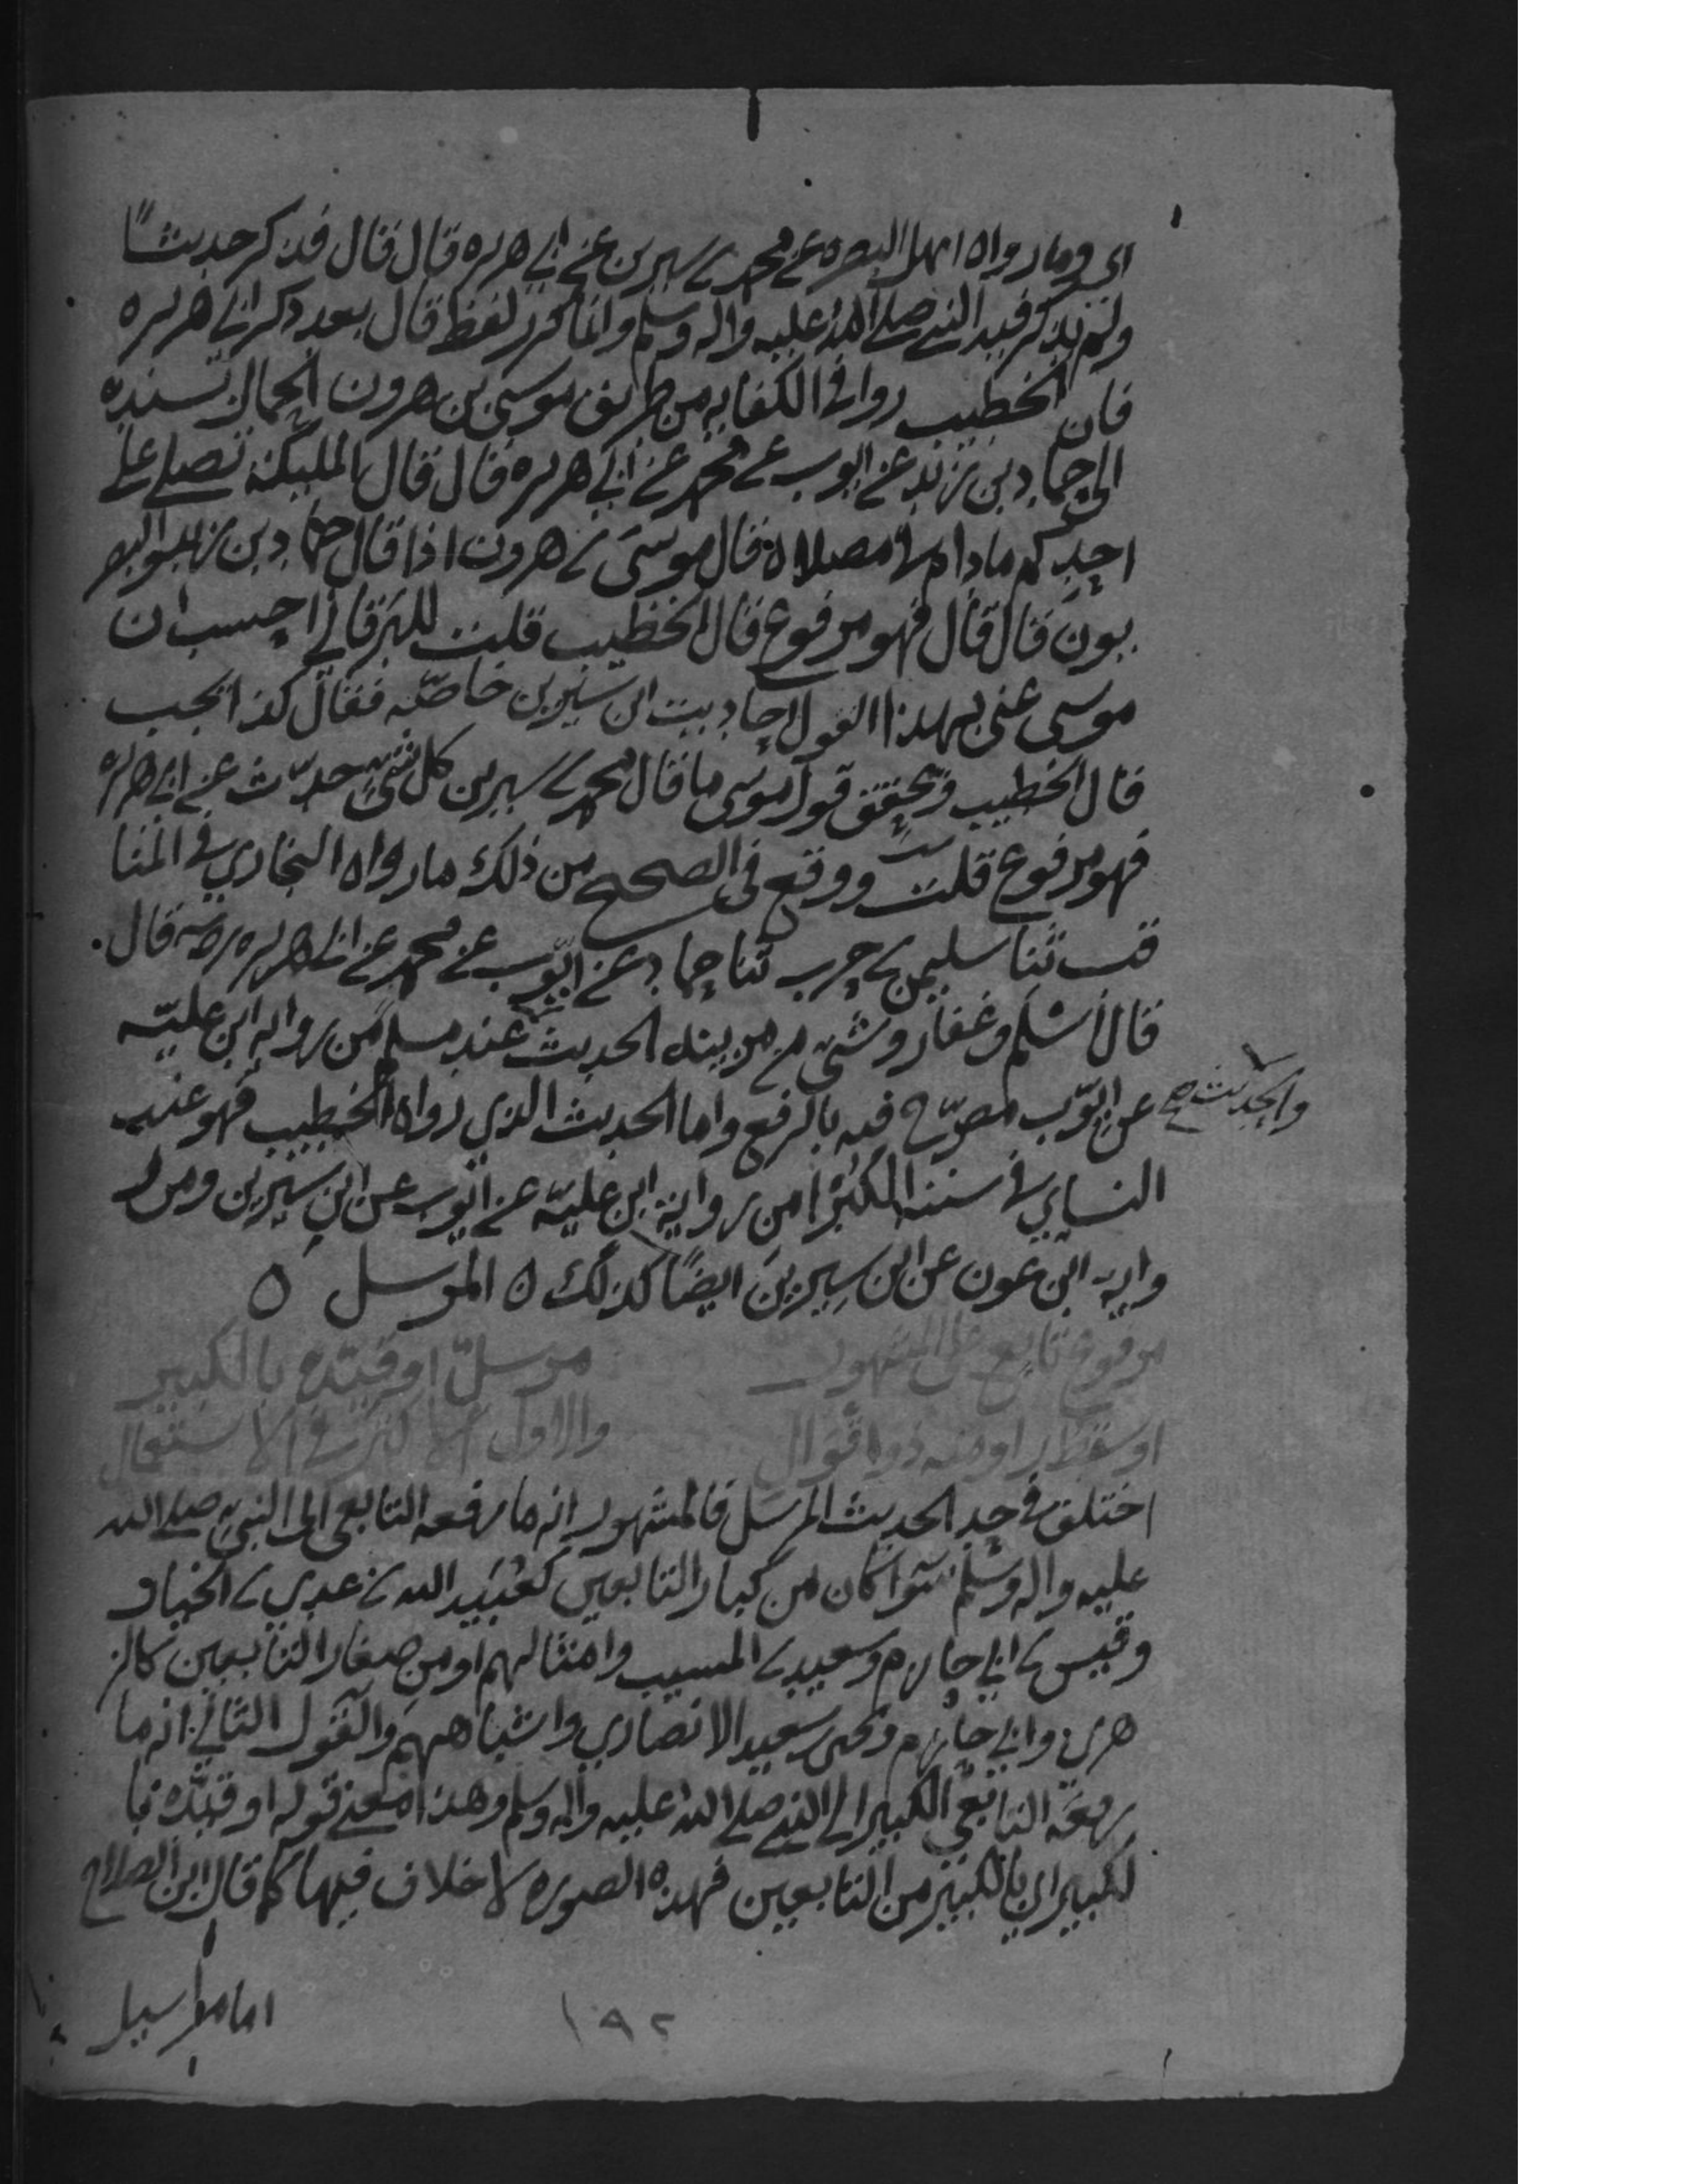 اي وما رواه اهل البصره عن محمد بن سيرين عن ابي هريره قال قال فذكر حديثاً
ولم يذكر فيه النبي صلى الله عليه واله وسلم وانما كرر لفظ قال بعد ذكر ابي هريره
فان الخطيب روا في الكفايه من طريق موسى بن هرون الحمال بسنده
الى حماد بن زيد عن ايوب عن محمد عن ابي هريره قال قال الملىكة تصلي على
احدكم مادام في مصلاه قال موسى بن هرون اذا قال حماد بن زيد والبصر
يون قال قال فهو مرفوع قال الخطيب قلت للبرقاني احسب ان
موسى عنى بهذا القول احاديث ابن سيرين خاصّه فقال كذا تجب
قال الخطيب وتحقق قول موسى ما قال محمد بن سيرين كل شيٍ حدّثت عن ابي هريره
فهو مرفوع قلت ووقع في الصحيح من ذلك ما رواه البخاري في المنا
قب ثنا سليمن بن حرب ثنا حماد عن ايّوب عن محمد عن ابي هريره رضه قال
قال أسْلم وغفار وشيٌ من مزينه الحديث عند مسلم من روايه ابن عليّه
عن ايّوب مصرّح فيه بالرفع واما الحديث الذي رواه الخطيب فهو عند
والحديث صح
النساي في سننه الكبرا من رواية ابن عليّه عن ايّوب عن ابن سيرين ومن ر
وايه ابن عون عن ابن سيرين ايضًا كذلك ه المرسل ه
مرفوع تابع على المشهور مرسل او قيّده بالكبير
او سقط راو منه ذو اقوال والاول الاكثر في الاستعمال
اختلف في حد الحديث المرسل فالمشهور انه ما رفعه التابعي الى النبي صلى الله
عليه واله وسلم سوا كان من كبار التابعين كعُبَيد الله بن عدي بن الخيار
وقيس بن ابي حازم وسعيد بن المسيب وامثالهم او من صغار التابعين كالز
هري وابي حازم ويحيى بن سعيد الانصاري واشباههم والقول الثاني انه ما
رفعه التابعي الكبير الى النبي صلى الله عليه واله وسلم وهذا معنى قوله او قيّده با
لكبير اي بالكبير من التابعين فهذه الصوره لا خلاف فيها كما قال ابن الصلاح
اما مراسيل
١٩٢